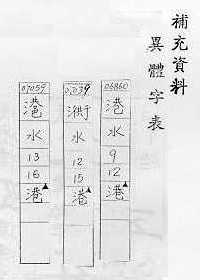 補充資料
異體字表
06860
港
水
9
12
港▲
水
12
15
港▲
07059
水
13
16
港▲